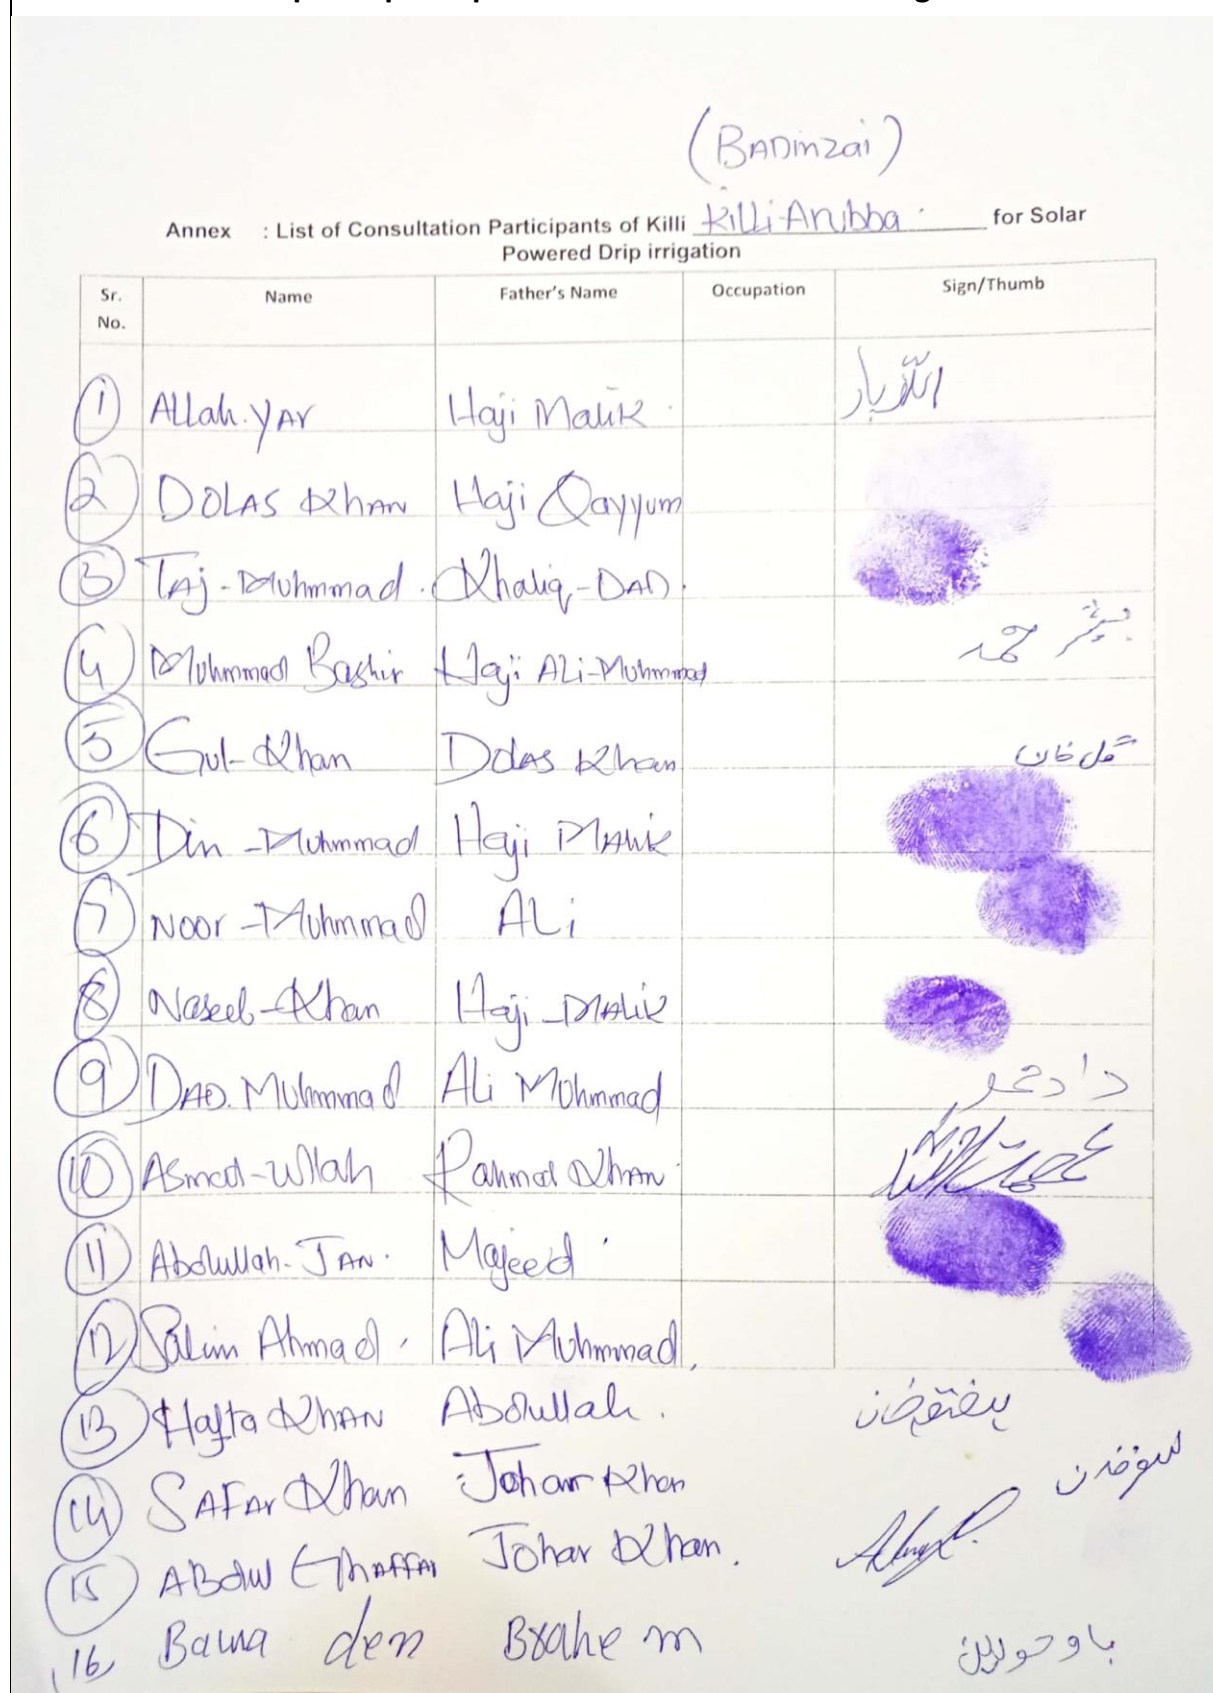 (BADinzai)
Annex : List of Consultation Participants of Killi Killi-Arubba for Solar
Powered Drip irrigation
Sr. No. Name Father's Name Occupation Sign/Thumb
1 Allah.YAr Haji Malik اللہ یار
2 DOLAS KhAN Haji Qayyum
3 TAj-Muhmmad. Khaliq-DAD.
4 Muhmmad Bashir Haji ALi-Muhmmad بشیر محمد
5 Gul-Khan DolAS Khan گل خان
6 Din-Muhmmad Haji MALik
7 Noor-Muhmmad ALi
8 Naseeb-Khan Haji-MALik
9 DAD.Muhmmad Ali Mohmmad داد محمد
10 Asmat-Ullah Rahmat KhAN عصمت اللہ
11 Abdullah-JAN. Majeed
12 Salim Ahmad, Ali Muhmmad,
13 Hafta KhAN Abdullah.
14 SAFAr Khan Johar Khan
15 ABdul GhAFFAr Johar Khan.
16 Bawa den Brahem